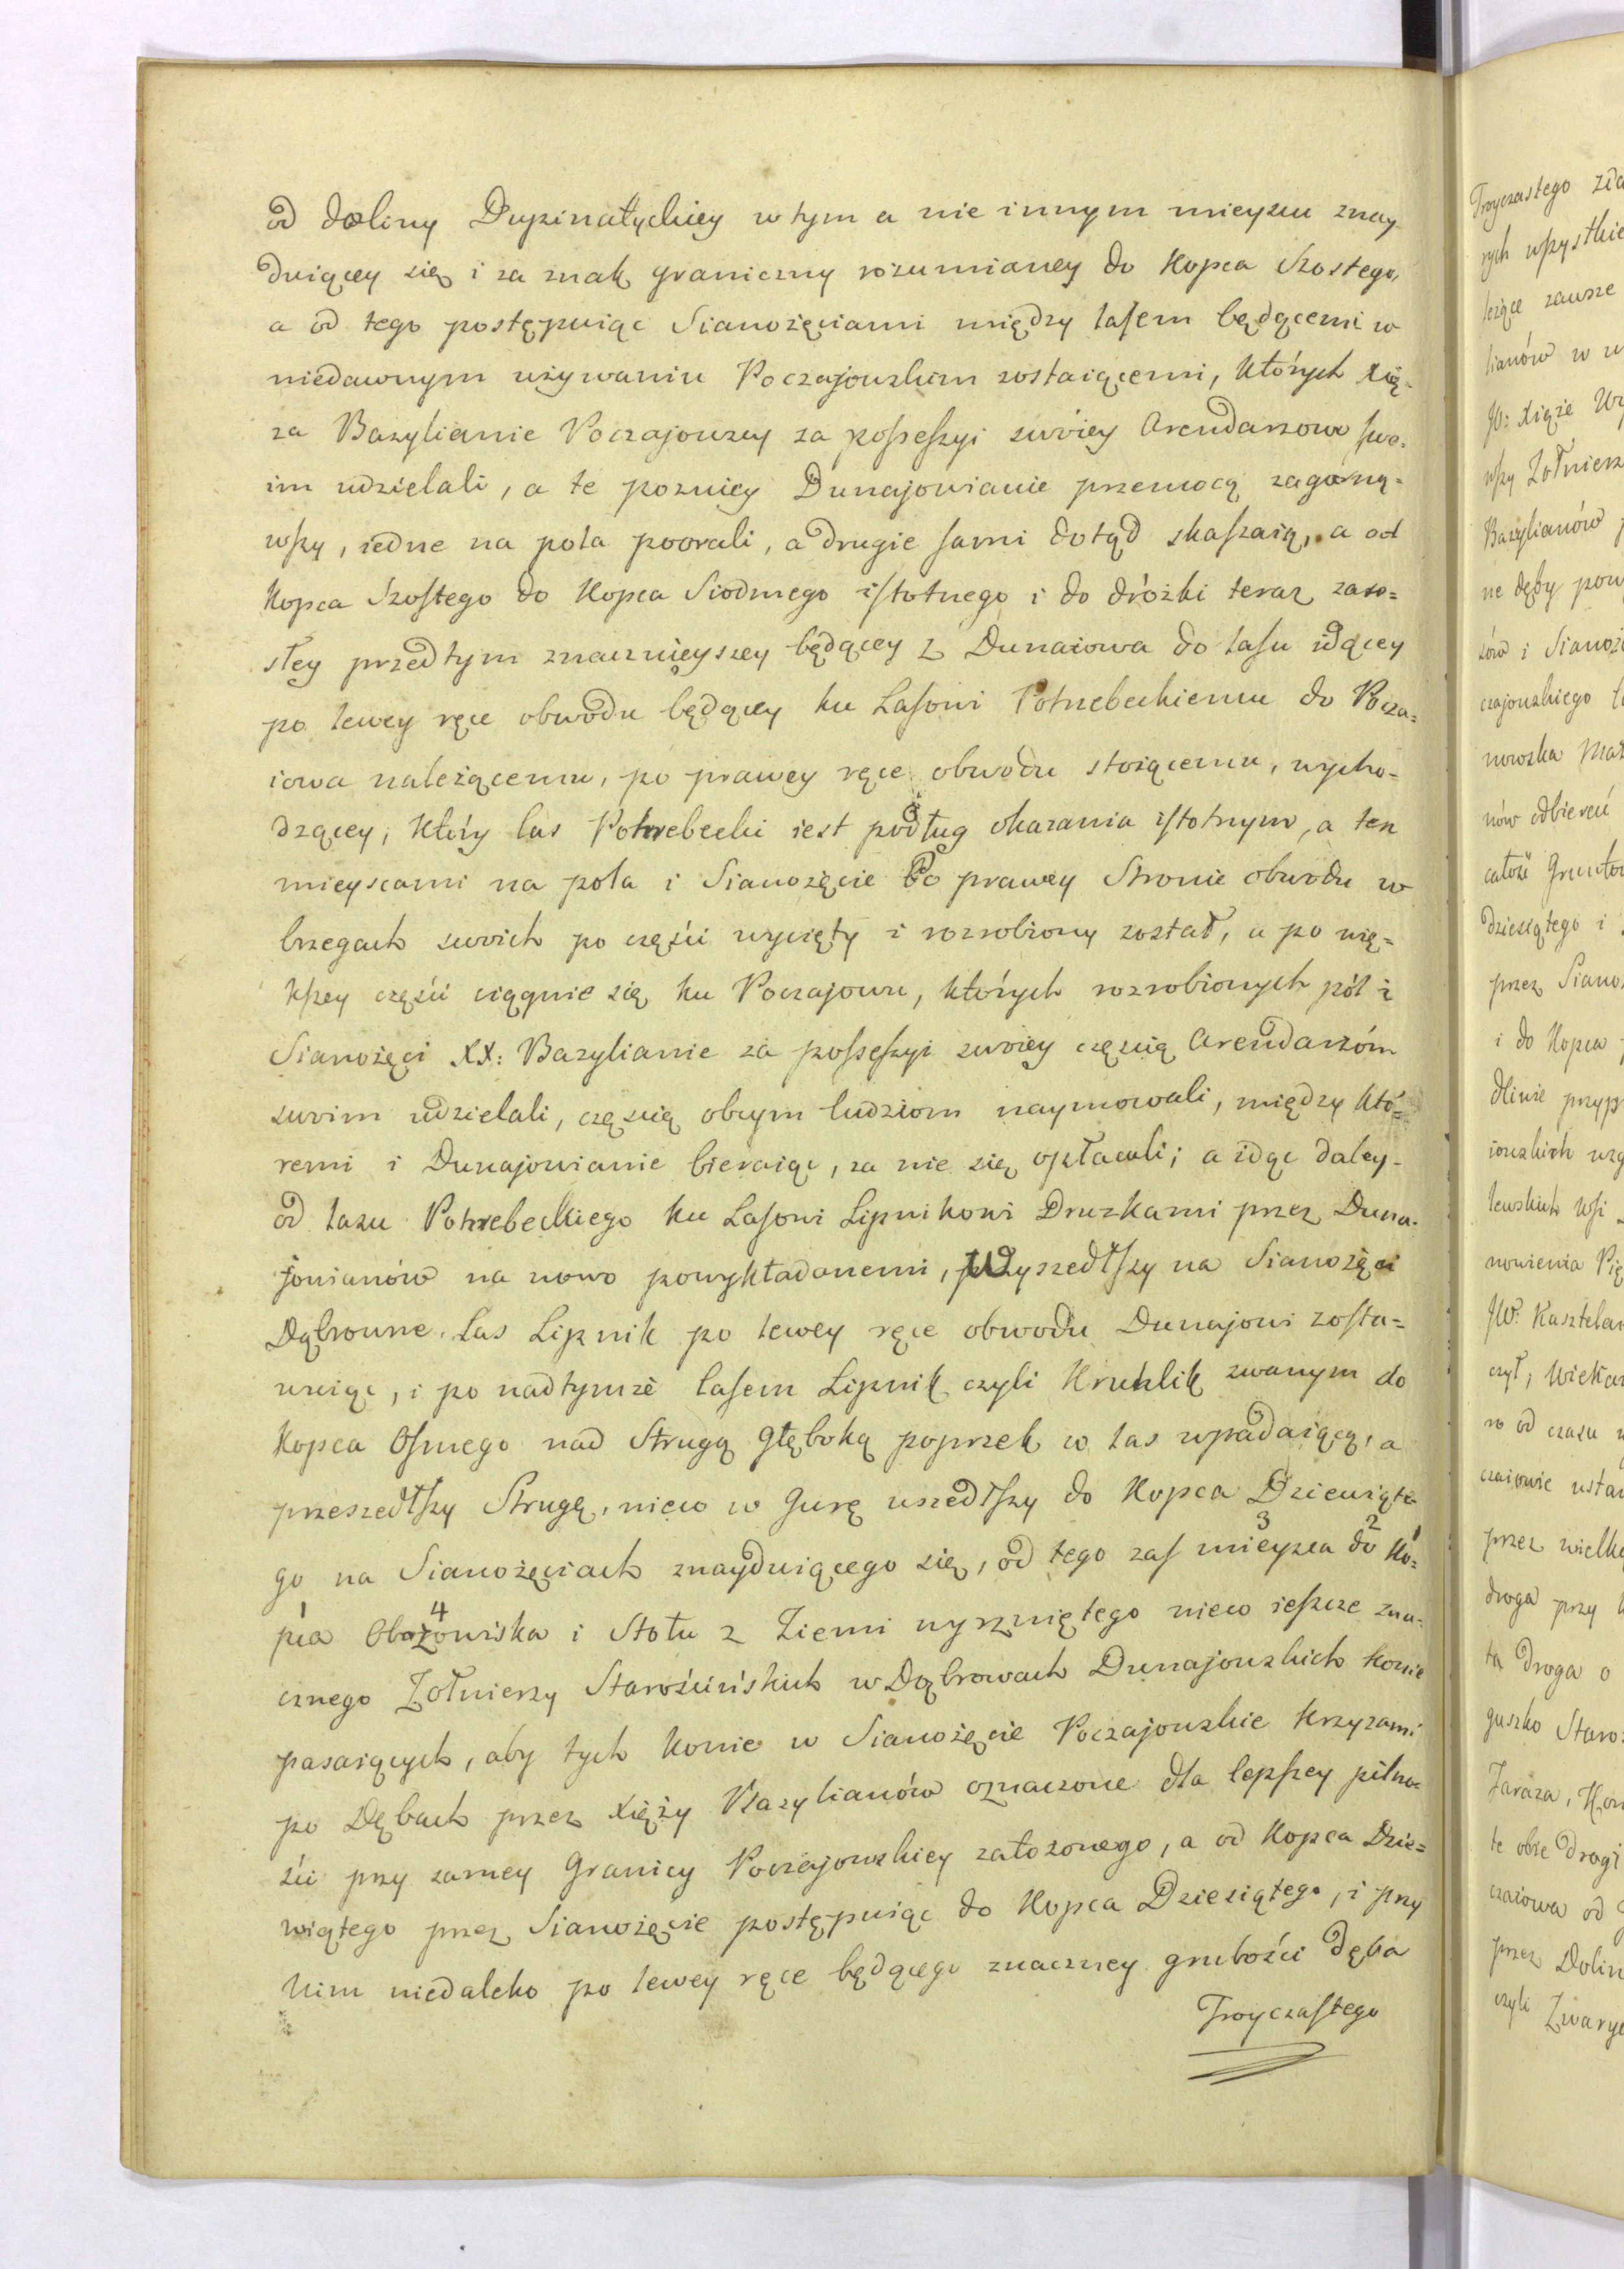 od doliny Dupinatyckiey w tym a nie innym mieyscu znay
duiącey się i za znak graniczny rozumianey do Kopca Szostego,
a od tego postępuiąc Sianożęciami między lasem będącemi w
niedawnym używaniu Poczajowskim zostaiącemi, których Xię-
za Bazylianie Poczajowscy za possessyi swoiey Arendarzowi swo-
im udzielali, a te pozniey Dunajowianie przemocą zagarną-
wszy, iedne na pola poorali, a drugie sami dotąd skaszaią, a od
Kopca Szostego do Kopca Siodmego istotnego i do dróżki teraz zaro-
słey przedtym znacznieyszey będącey z Dunaiowa do lasu idącey
po lewey ręce obwodu będącey ku Lasowi Potrebeckiemu do Pocza-
iowa należącemu, po prawey ręce obwodu stoiącemu, wycho-
dzącey; który las Potrebecki iest podług okazania istotnym, a ten
mieyscami na pola i Sianożęcie po prawey Stronie obwodu w
brzegach swoich po części wycięty i rozrobiony został, a po wię-
kszey części ciągnie się ku Poczajowu, których rozrobionych pól i
Sianożęci XX: Bazylianie za possessyi swoiey częścią Arendarzóm
swoim udzielali, częścią obcym ludziom naymowali, między któ-
remi i Dunajowianie bieraiąc, za nie się opłacali; a idąc daley
od lasu Potrebeckiego ku Lasowi Lipnikowi Druzkami przez Duna-
jowianów na nowo powykładanemi, wyszedłszy na Sianożęci
Dąbrowne. Las Lipnik po lewey ręce obwodu Dunajowi zosta-
wuiąc, i po nadtymże lasem Lipnik czyli Kruhlik zwanym do
Kopca Osmego nad Strugą Głęboką poprzek w las wpadaiącą, a
przeszedłszy Strugę, nieco w Gurę uszedłszy do Kopca Dziewiąte
go na Sianożęciach znayduiącego się, od tego zas mieysca do Ko-
3 2 1
pca Obozowiska i Stołu z Ziemi wyrzniętego nieco ieszcze zna-
1 4
cznego Żołnierzy Starościńskich w Dąbrowach Dunajowskich konie
pasaiących, aby tych konie w Sianożęcie Poczajowskie krzyzami
po Dębach przez Xięży Bazylianów oznaczone dla lepszey pilno
ści przy samey Granicy Poczajowskiey założonego, a od Kopca Dzie-
wiątego przez Sianożęcie postępuiąc do Kopca Dziesiątego, i przy
nim niedaleko po lewey ręce będącego znaczney grubości Dęba
Troyczastego